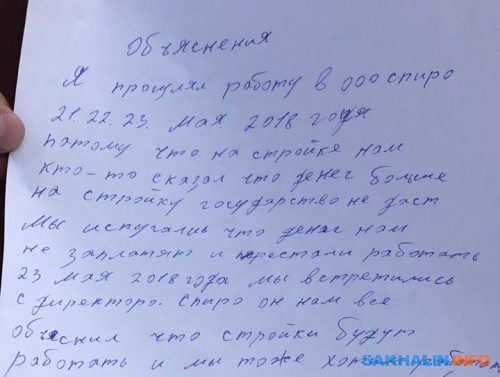 Объяснения
Я прогулял работу в ООО спиро
21. 22. 23. Мая 2018 года
патому что на стройке нам
кто-то сказал что денег больше
на стройку государство не даст
Мы испугались что денег нам
не заплатят и перестали работать
23 мая 2018 года мы встретились
с директоро. спиро он нам все
объяснил что стройки будут
работать и мы тоже
SAKHALIN.INFO